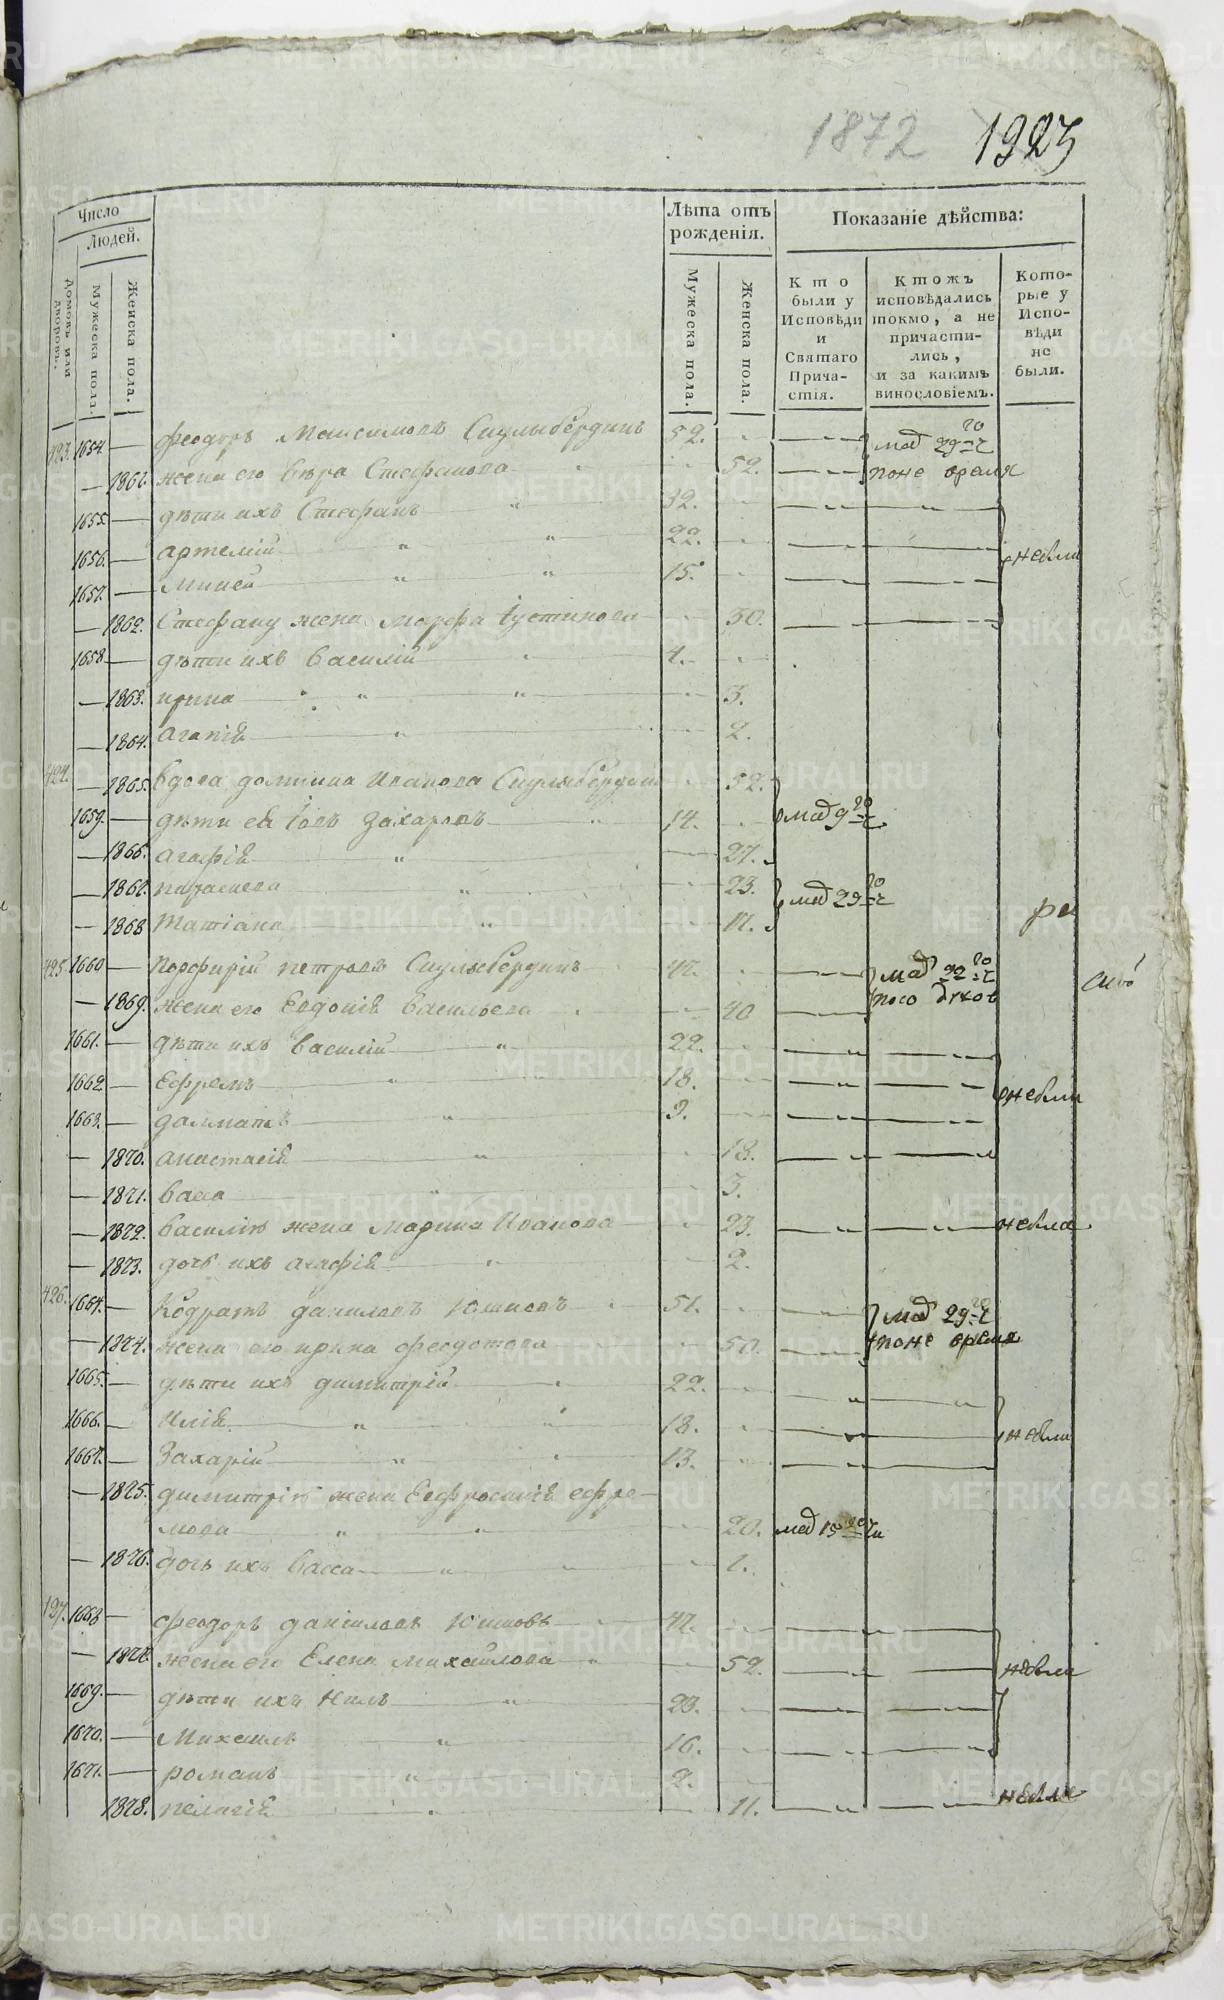 1872 1923
Число
Людей.
Домовъ или дворовъ.
Мужеска пола.
Женска пола.
Лѣта отъ рожденія.
Мужеска пола.
Женска пола.
Показаніе дѣйства:
Кто были у Исповѣди и Святаго Причастія.
Ктожъ исповѣдались токмо, а не причастились, и за какимъ винословіемъ.
Которые у Исповѣди не были.
423. 1654. феодоръ Максимовъ 52. мая 29 го
1861. жена его вѣра Стефанова 52. поне время
1655. дѣти ихъ Стефанъ 32.
1656. артемій 22. небли
1657. миней 15.
1862. Стефану жена марфа Іустинова 30.
1658. дѣти ихъ василій 4.
1863. ирина 3.
1864. агапіѣ 2.
424. 1865. вдова домнина Иванова 52.
1659. дѣти еѣ Іовъ Захаровъ 14. мая 9 го
1866. агафіѣ 27.
1867. параскева 23. мая 29 го
1868 татіана 11.
425. 1660 порфирій петровъ 47. мая 22 го
1869. жена его Евдокіѣ васильева 40
1661. дѣти ихъ василій 22.
1662 Ефремъ 18. небли
1663. далматъ 9.
1870. анастасіѣ 18.
1871. васса 3.
1872. василію жена марина Иванова 23. небла
1873. дочь ихъ агафіѣ 2.
426. 1664. Кодратъ даниловъ Юшковъ 51. мая 29 го
1874. жена его ирина феодотова 50. поне время
1665. дѣти ихъ димитрій 22.
1666. иліѣ 18. небли
1667. Захарій 13.
1875. димитрію жена Евфросиніѣ ефре-
мова 20. мая 15 го
1876. дочь ихъ васса 1.
427. 1668 феодоръ даниловъ Юшковъ 47.
1877. жена его Елена михайлова 52. небли
1669. дѣти ихъ Нилъ 23.
1670. Михаилъ 16.
1671. романъ 2.
1878. пелагіѣ 11. небла
METRIKI.GASO-URAL.RU